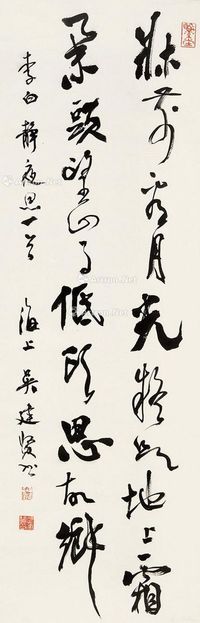 牀前看月光疑是地上霜
舉頭望山月低頭思故鄉
李白靜夜思一首 海上 吴建贤书